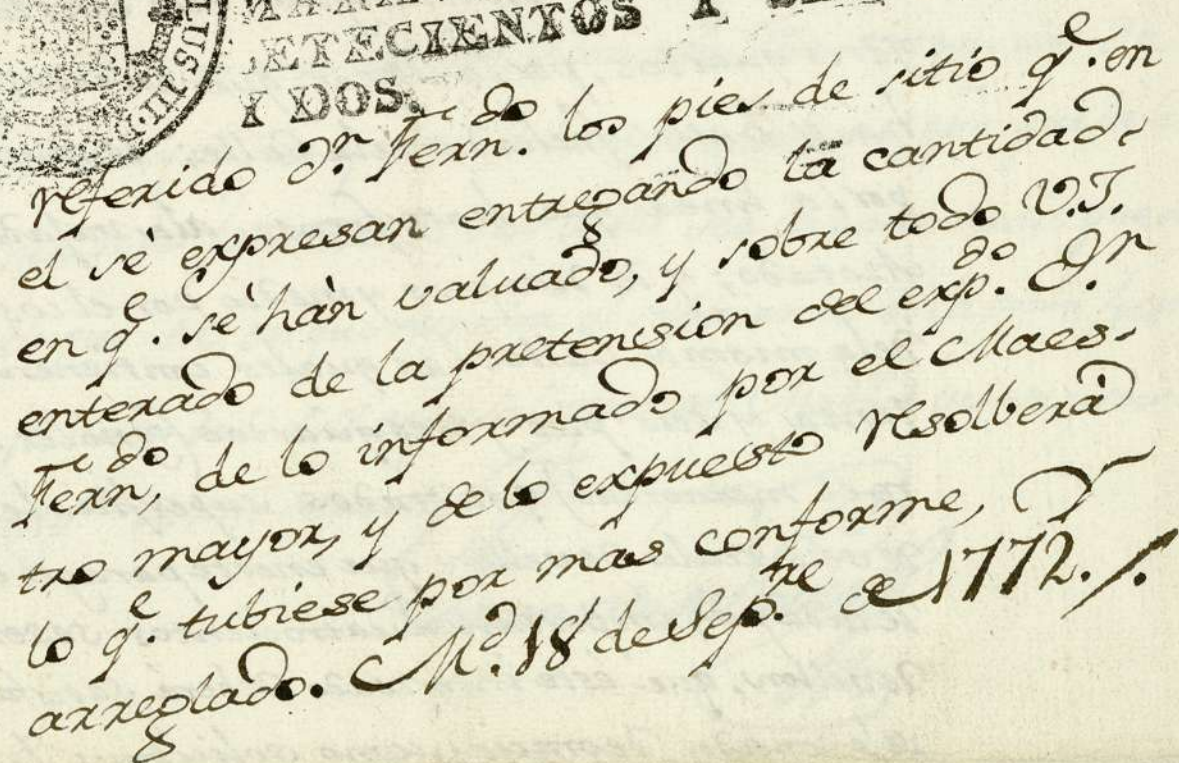 LUS III D
MARA
ETECIENTOS Y SE
Y DOS.
referido Dn. Ferndo. los pies de sitio qe. en
el sè expresan entregando la cantidad
en qe. sè hàn valuado, y sobre todo V.I.
enterado de la pretension del expdo. Dn.
Ferndo, de lo informado por el Maes-
tro mayor, y de lo expuesto resolberà
lo qe. tubiese por mas conforme, Y
arreglado. Md. 18 de Septre. de 1772./.